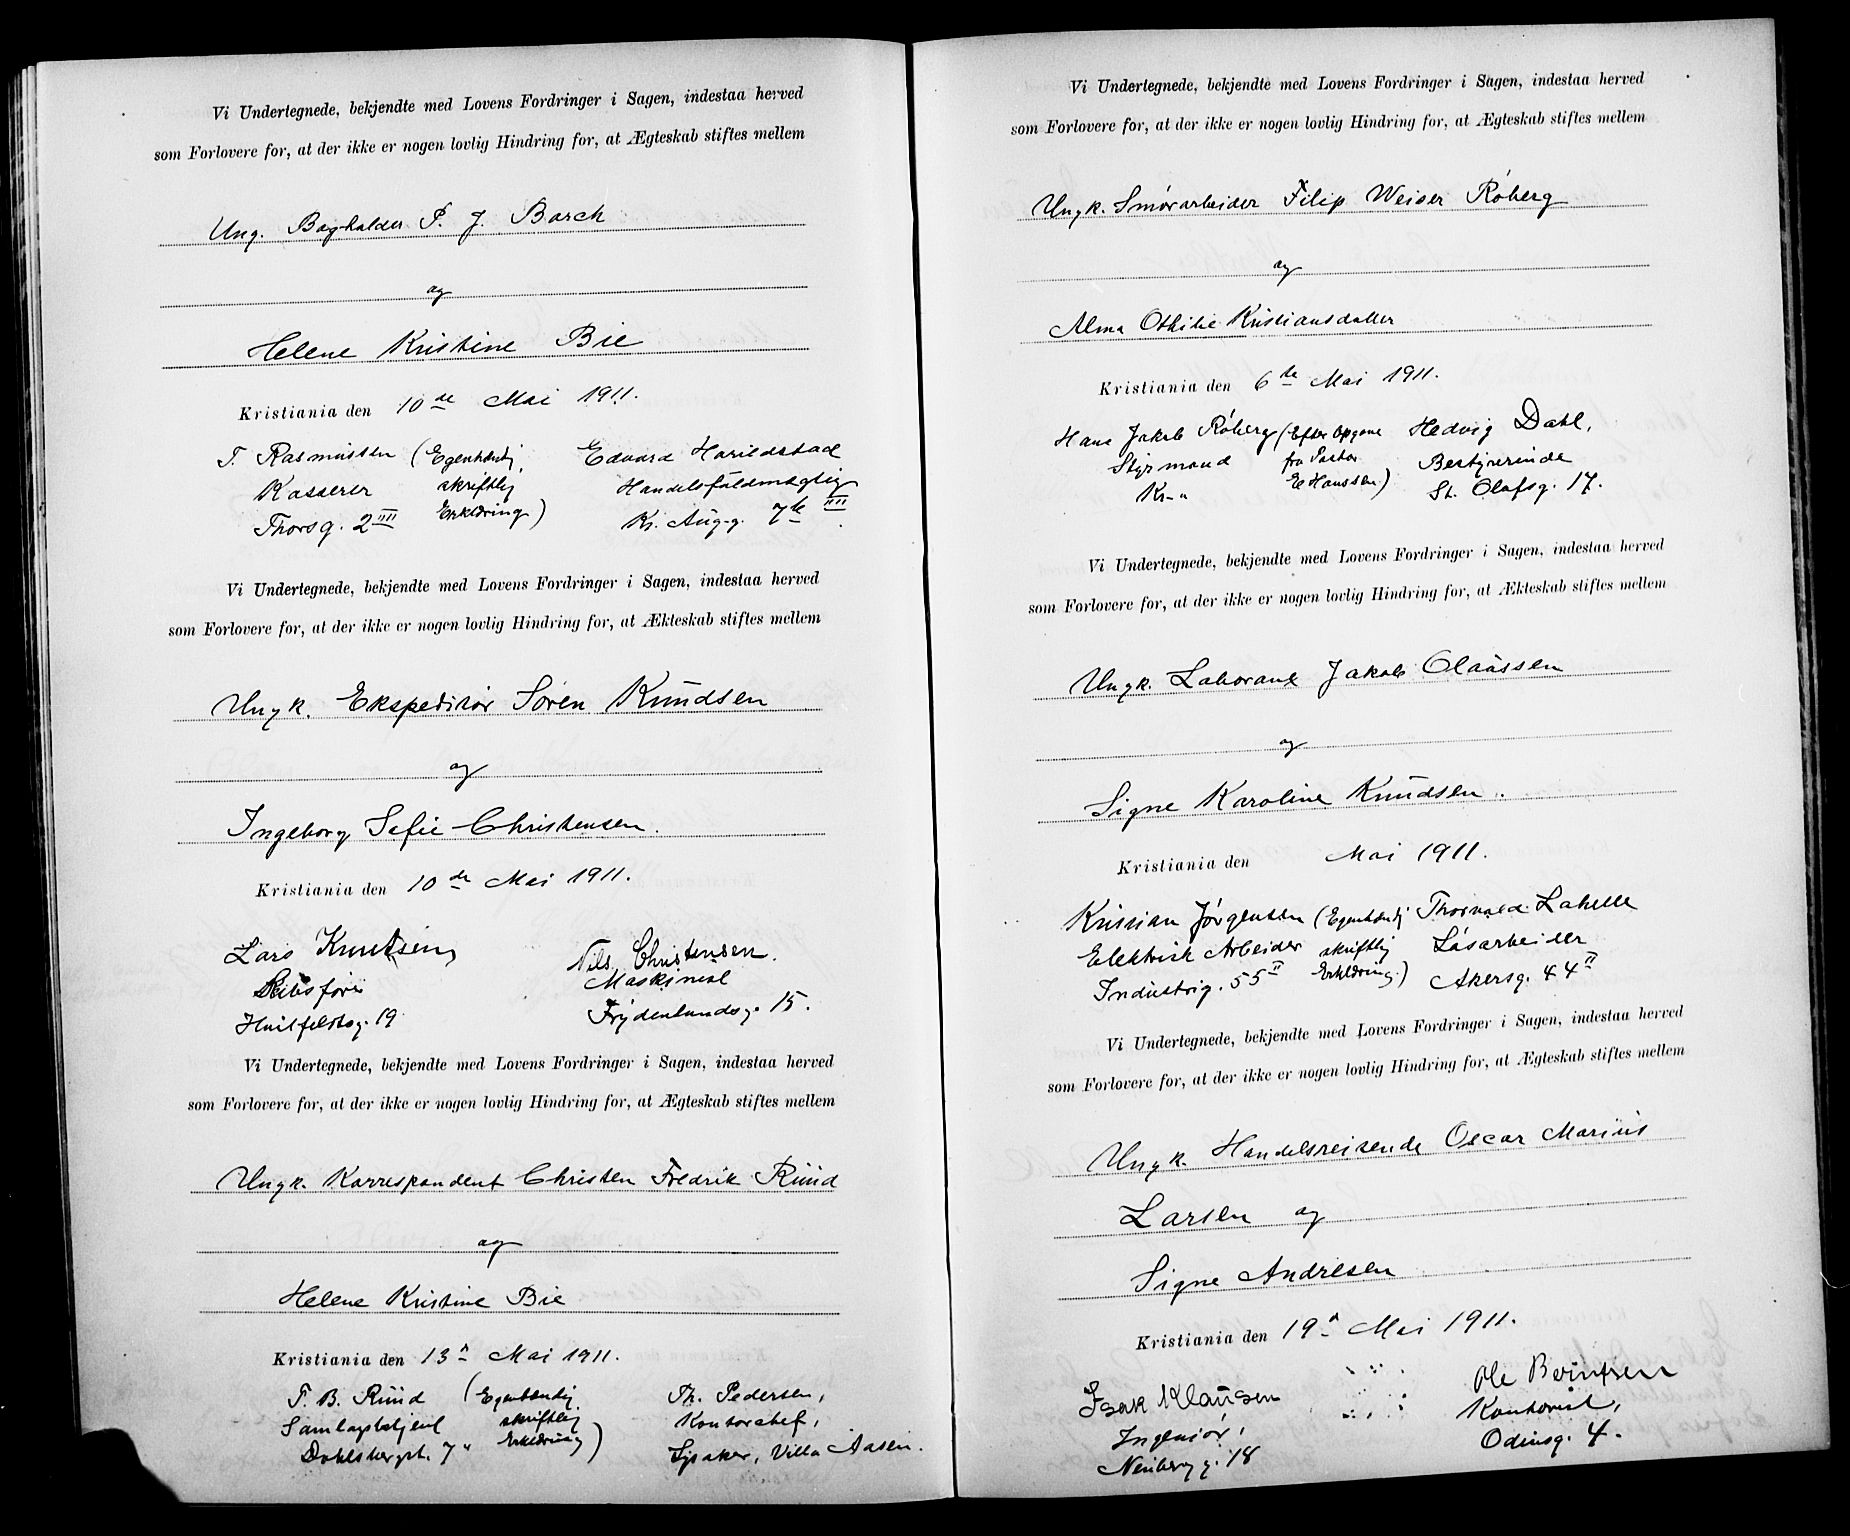 Vi Undertegnede, bekjendte med Lovens Fordringer i Sagen, indestaa herved
som Forlovere for, at der ikke er nogen lovlig Hindring for, at Ægteskab stiftes mellem
Ung. Bogholder P. J. Barck
og
Helene Kristine Bie
Kristiania den 10de Mai 1911.
T. Rasmussen (Egenhændig Edvard Harildstad
Kasserer skriftlig Handelsfuldmægtig
Thorsg. 2 IIII Erklæring) Kr. Aug.g. 7b IIII
Vi Undertegnede, bekjendte med Lovens Fordringer i Sagen, indestaa herved
som Forlovere for, at der ikke er nogen lovlig Hindring for, at Ækteskab stiftes mellem
Ungk. Ekspeditør Søren Knudsen
og
Ingeborg Sofie Christensen.
Kristiania den 10de Mai 1911.
Lars Knutsen Nils Christensen.
Skibsfører Maskinist
Huitfeldtsg. 19 Frydenlundsg. 15.
Vi Undertegnede, bekjendte med Lovens Fordringer i Sagen, indestaa herved
som Forlovere for, at der ikke er nogen lovlig Hindring for, at Ægteskab stiftes mellem
Ungk. Korrespondent Christen Fredrik Ruud
og
Helene Kristine Bie
Kristiania den 13n Mai 1911.
T. B. Ruud (Egenhændig Th. Pedersen,
Samlagsbetjent skriftlig Kontorchef,
7 Erklæring) Lysaker, Villa Aasen.
Vi Undertegnede, bekjendte med Lovens Fordringer i Sagen, indestaa herved
som Forlovere for, at der ikke er nogen lovlig Hindring for, at Ægteskab stiftes mellem
Ungk. Smørarbeider Filip Weiser Røberg
og
Alma Othilie Kristiansdatter
Kristiania den 6te Mai 1911.
Hans Jakob Røberg (Efter Opgave Hedvig Dahl,
Styrmand fra Pastor Bestyrerinde
Kr-a E Hanssen) St. Olafsg. 17.
Vi Undertegnede, bekjendte med Lovens Fordringer i Sagen, indestaa herved
som Forlovere for, at der ikke er nogen lovlig Hindring for, at Ækteskab stiftes mellem
Ungk. Laborant Jakob Olaussen
og
Signe Karoline Knudsen.
Kristiania den Mai 1911.
Kristian Jørgensen (Egenhændig Thorvald Lahelle
Elektrisk Arbeider skriftlig Løsarbeider
Industrig. 55 II Erklæring.) Akersg. 44 II
Vi Undertegnede, bekjendte med Lovens Fordringer i Sagen, indestaa herved
som Forlovere for, at der ikke er nogen lovlig Hindring for, at Ægteskab stiftes mellem
Ungk. Handelsreisende Oscar Marius
Larsen og
Signe Andresen
Kristiania den 19d Mai 1911.
Isak Klausen Ole Berntsen
Ingeniør, Kontorist,
Neubergg. 18 Odinsg. 4.